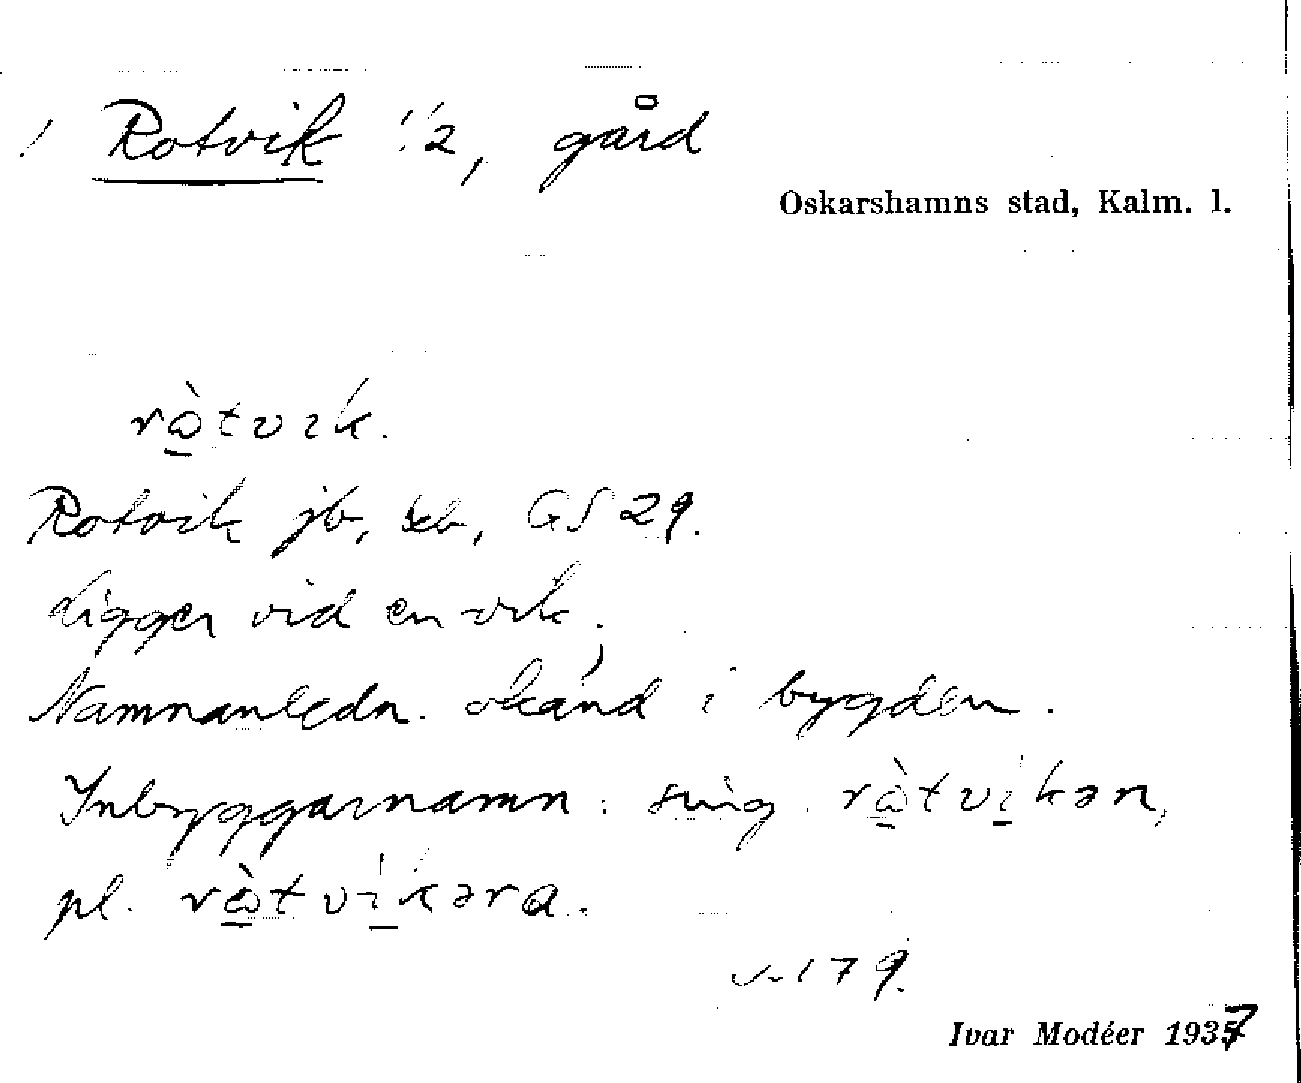 ! Rotvik 1/2, gård
Oskarshamns stad, Kalm. l.
rὼtvik.
Rotvik jb, GS 29.
Ligger vid en vik.
Namnanledn. okänd i bygden.
Inbyggarnamn: sing. rὼtvikən,
pl. rὼtvikəra.
179.
Ivar Modéer 1937